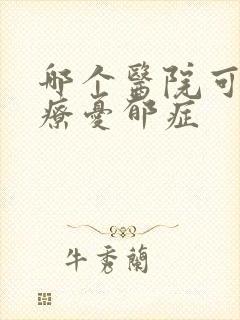 哪个醫院可
療憂郁症
牛秀蘭